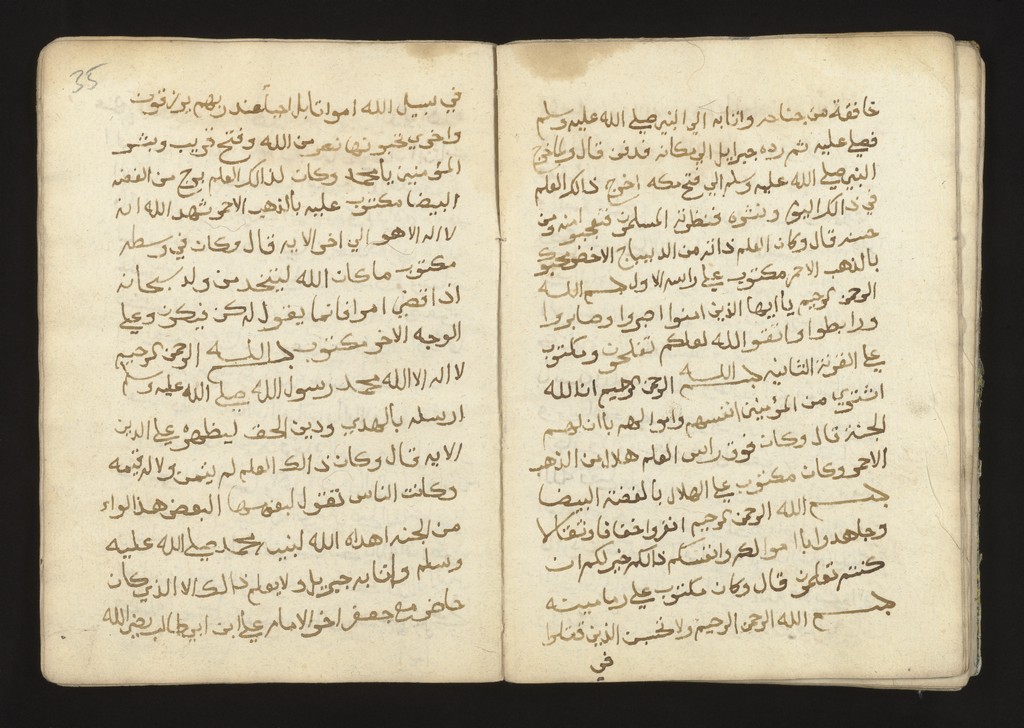 خافقة من جناحه واتا به الي النبي صلي الله عليه وسلم
فصلي عليه ثم رده جبرايل الي مكانه فدفن قال ولما خرج
النبي صلي الله عليه وسلم الي فتح مكه اخرج ذالك العلم
في ذالك اليوم ونشره فنظرته المسلمون فتعجبوا منه ومن
حسنه قال وكان العلم ذاته من الديباج الاخضر
بالذهب الاحمر مكتوب علي راسه الاول بسم الله
الرحمن الرحيم يا ايها الذين امنوا اصبروا وصابروا
ورابطوا واتقوا الله لعلكم تفلحون ومكتوب
علي القرنة الثانيه بسم الله الرحمن الرحيم ان الله
اشتري من المؤمنين انفسهم واموالهم باان لهم
الجنة قال وكان فوق راس العلم هلال من الذهب
الاحمر وكان مكتوب علي الهلال بالفضة البيضا
بسم الله الرحمن الرحيم انفروا خفافا وثقالا
وجاهدوا باموالكم وانفسكم ذالكم خير لكم ان
كنتم تعلمون قال وكان مكتوب علي
بسم الله الرحمن الرحيم ولا تحسبن الذين قتلوا
في
35
في سبيل الله امواتا بل احيا عند ربهم يرزقون
واخري تحبونها نصر من الله وفتح قريب وبشر
المؤمنين يا محمد وكان لذالك العلم من الفضه
البيضا مكتوب عليه بالذهب الاحمر شهد الله انه
لا اله الا هو الي اخر الايه قال وكان في وسطه
مكتوب ما كان الله ليتخد من ولد سبحانه
اذا قضي امرا فانما يقول له كن فيكون وعلي
الوجه الاخر مكتوب بسم الله الرحمن الرحيم
لا اله الا الله محمد رسول الله صلي الله عليه وسلم
ارسله بالهدي ودين الحق ليظهره علي الدين
الايه قال وكان ذالك العلم لم يثمن ولا له قيمه
وكانت الناس تقول لبعضها البعض هذا الواء
من الجنه اهداه الله لنبيه محمد صلي الله عليه
وسلم واتا به جبريل ولا يعلم ذالك الا الذي كان
حاضر مع جعفر اخو الامام علي ابن ابي طالب رضي الله